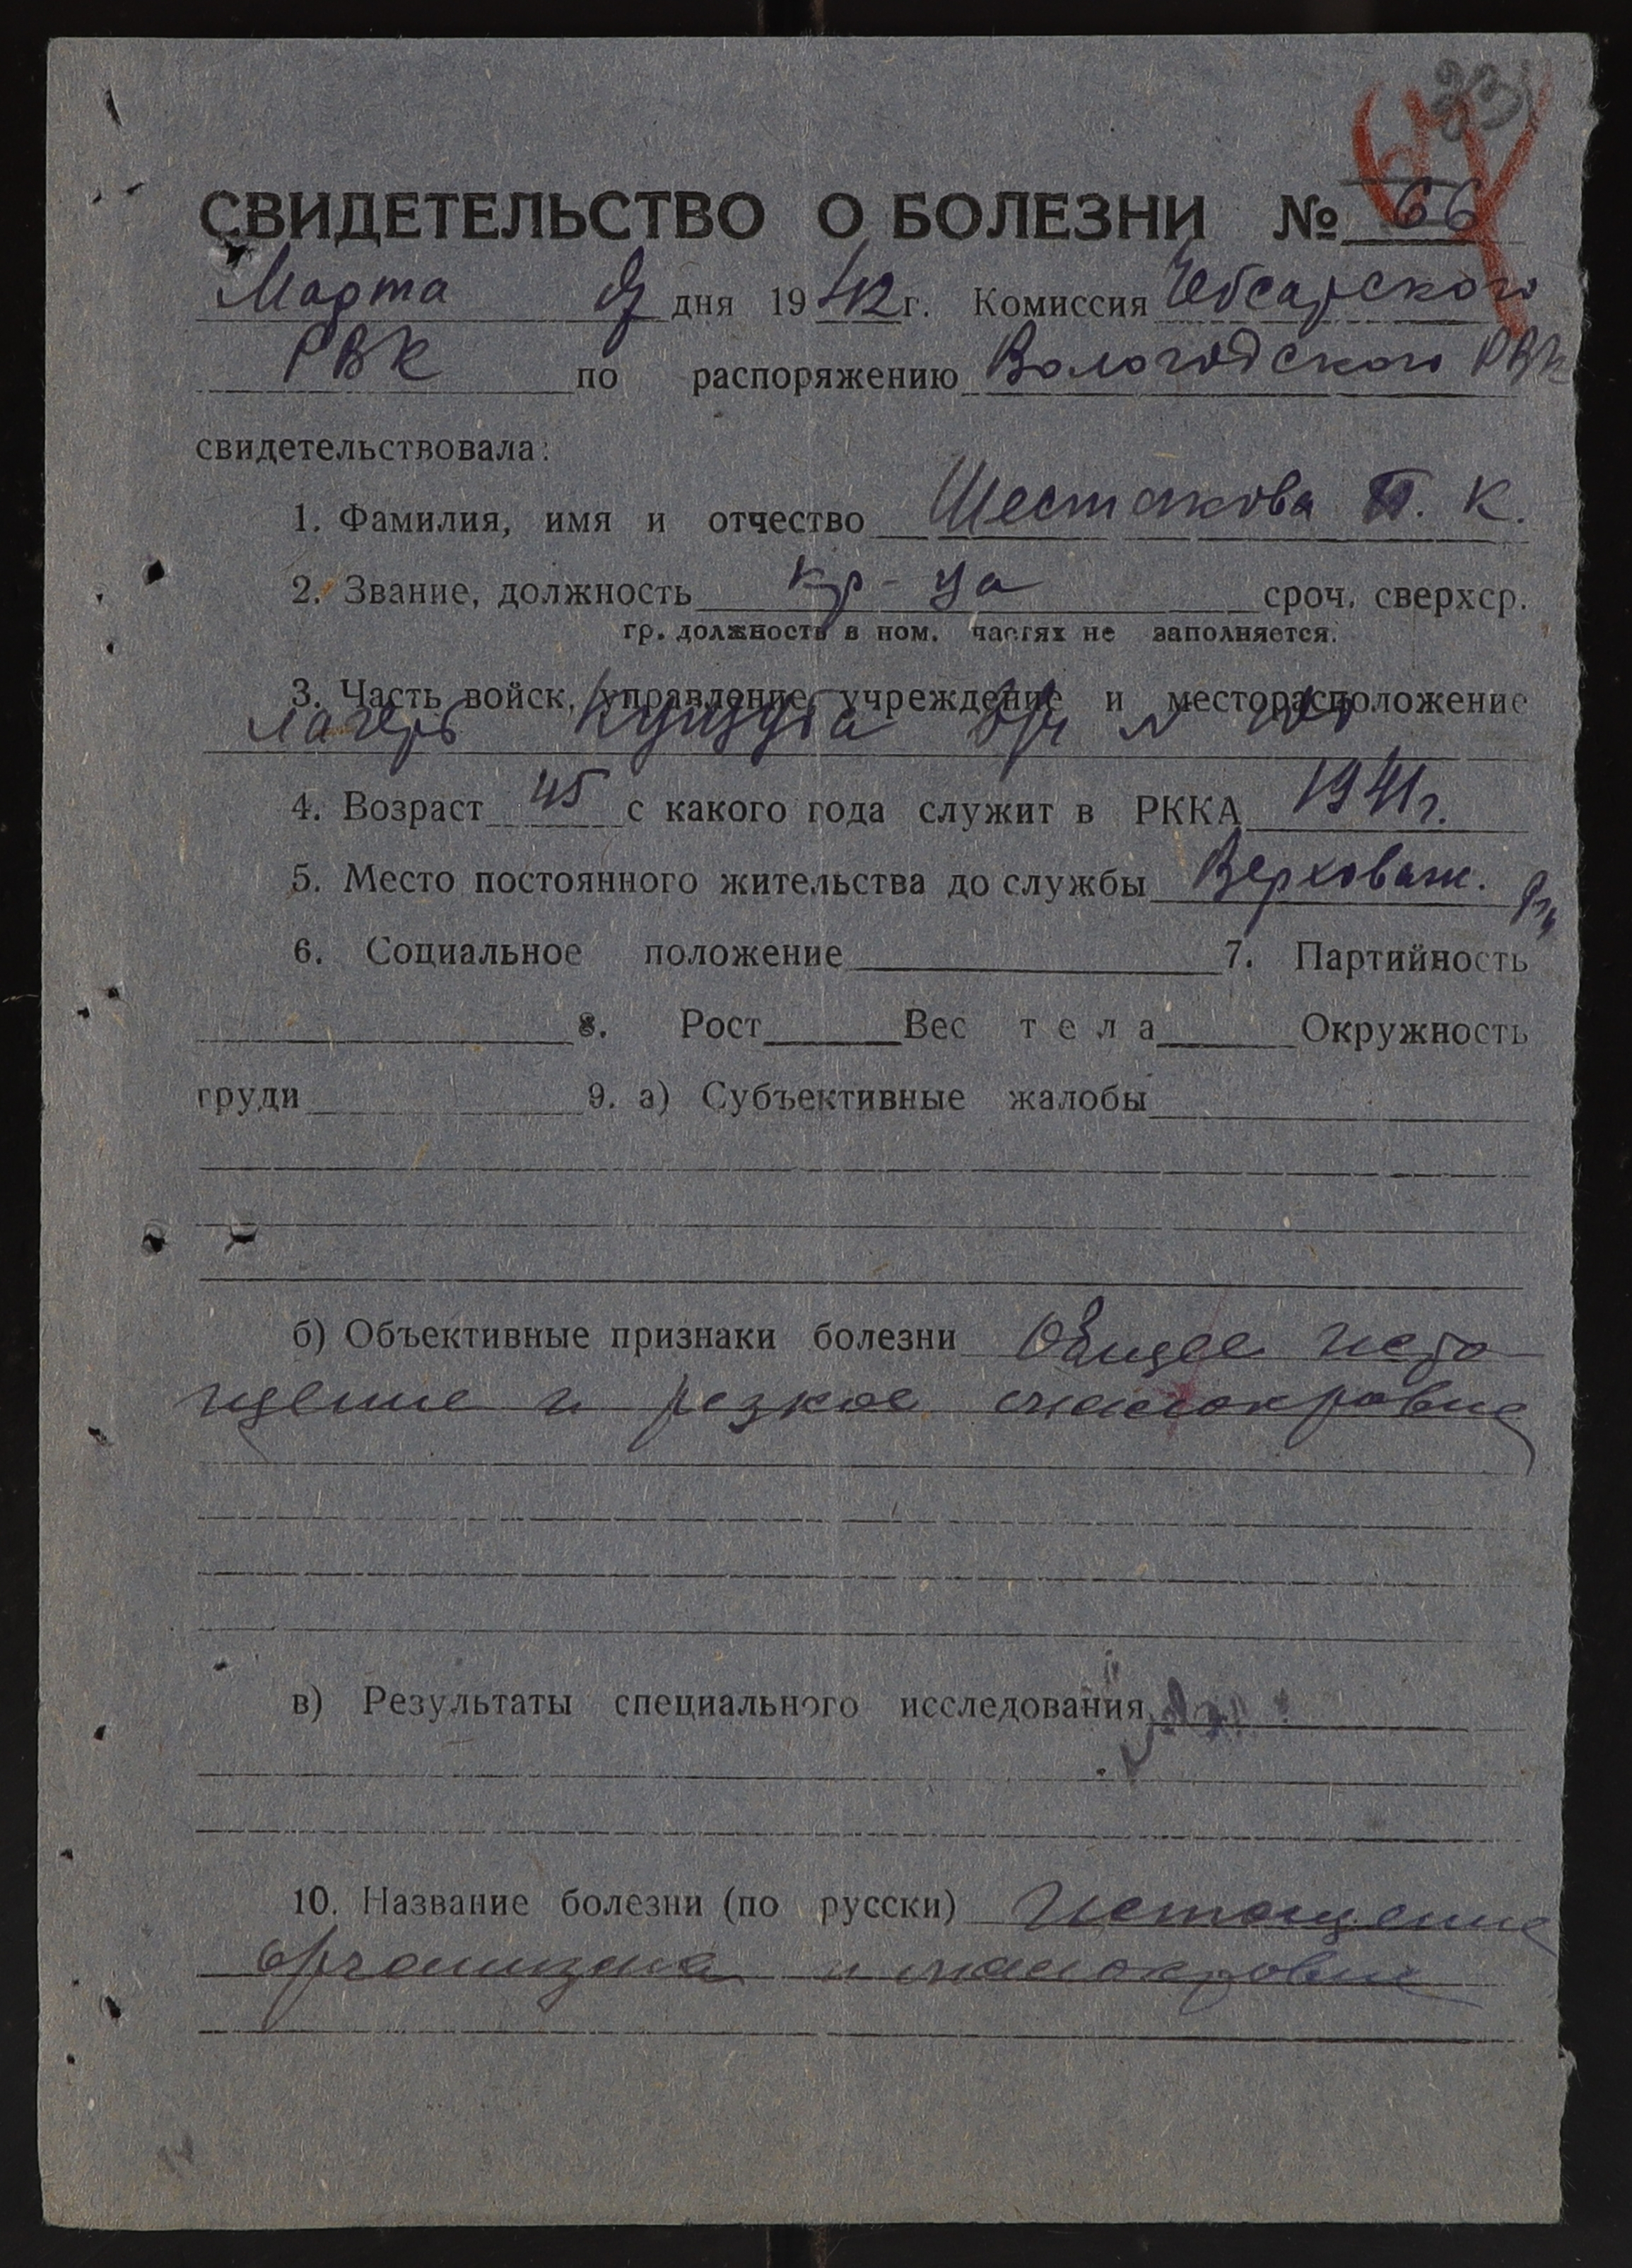 23
СВИДЕТЕЛЬСТВО О БОЛЕЗНИ № 66
Марта дня 1942 г. Комиссия Чебсарского
РВК по распоряжению Вологодского РВК
свидетельствовала:
1. Фамилия, имя и отчество Шестакова П. К.
2. Звание, должность кр-ца сроч. сверхср.
гр. должность в ном. частях не заполняется.
3. Часть войск, управление, учреждение и месторасположение
лагерь Кущуба №
4. Возраст 45 с какого года служит в РККА 1941 г.
5. Место постоянного жительства до службы Верховаж.
6. Социальное положение 7. Партийность
8. Рост Вес тела Окружность
груди 9. а) Субъективные жалобы
б) Объективные признаки болезни Общее исто-
щение и резкое малокровие
в) Результаты специального исследования
10. Название болезни (по русски) Истощение
организма и малокровие